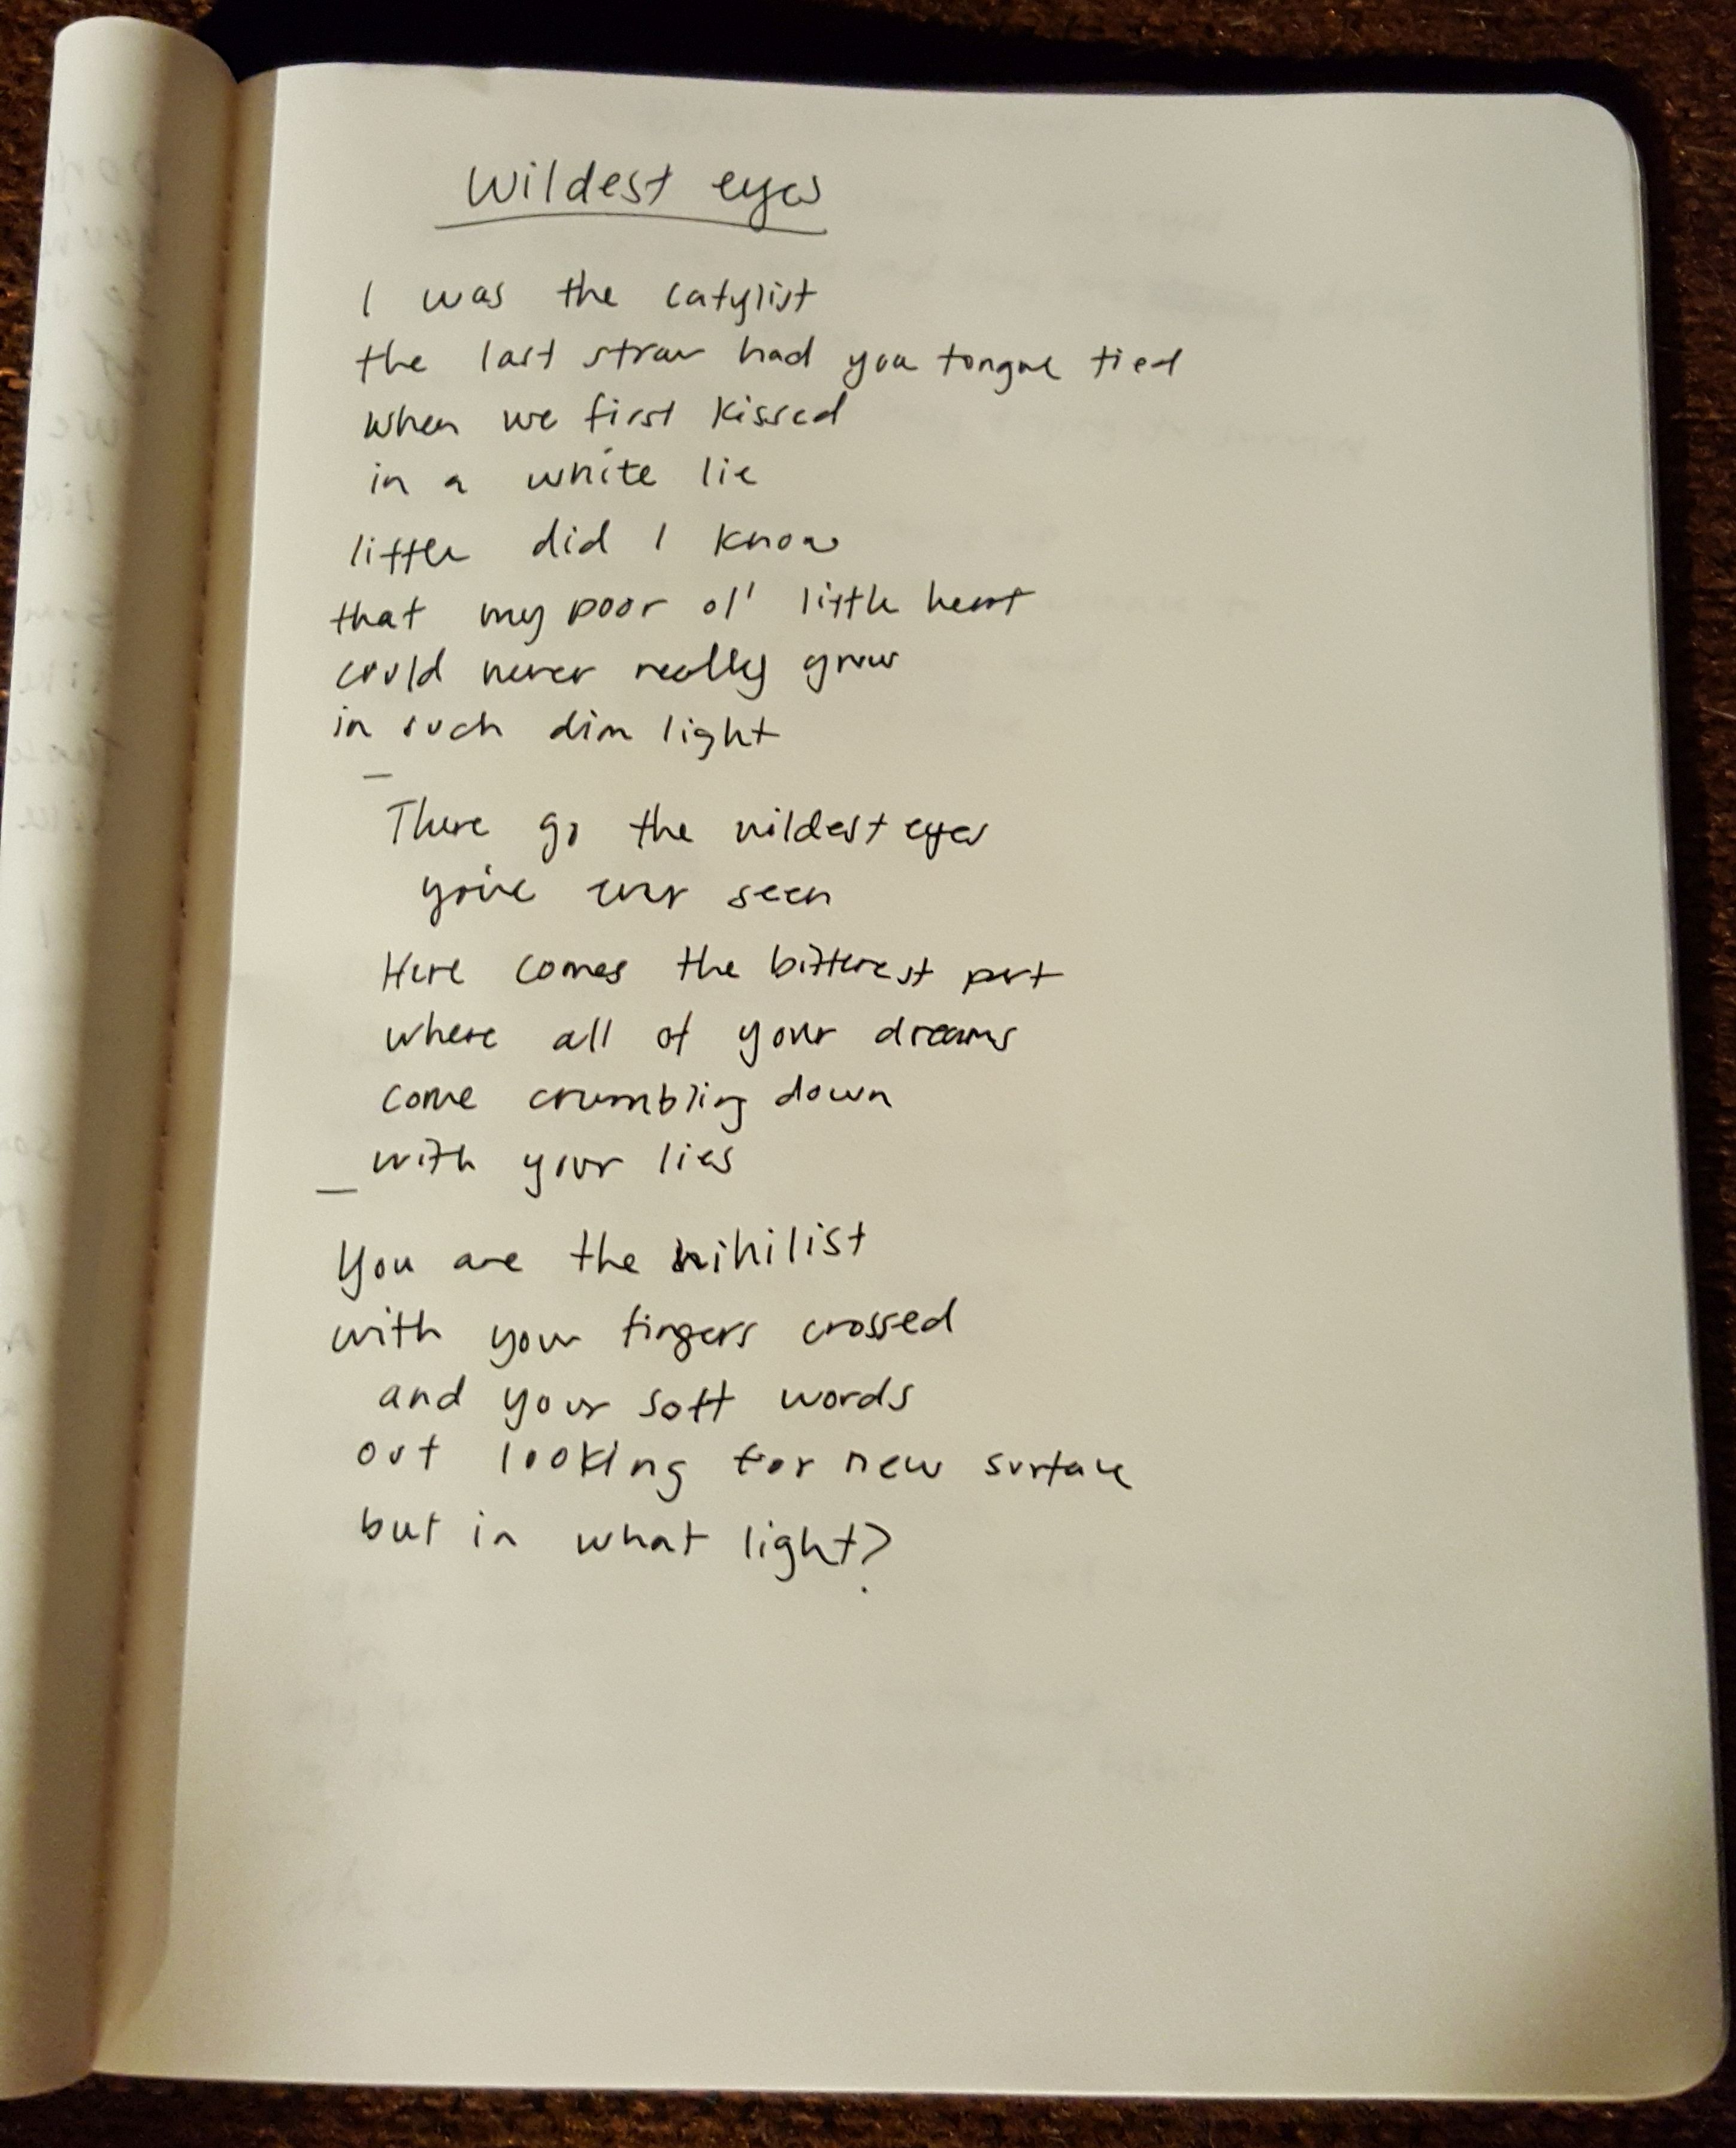 Wildest eyes
I was the catylist
the last straw had you tongue tied
when we first kissed
in a white lie
little did I know
that my poor ol' little heart
could never really grow
in such dim light
—
There go the wildest eyes
you've ever seen
Here comes the bitterest part
where all of your dreams
come crumbling down
with your lies
—
You are the nihilist
with your fingers crossed
and your soft words
out looking for new surface
but in what light?